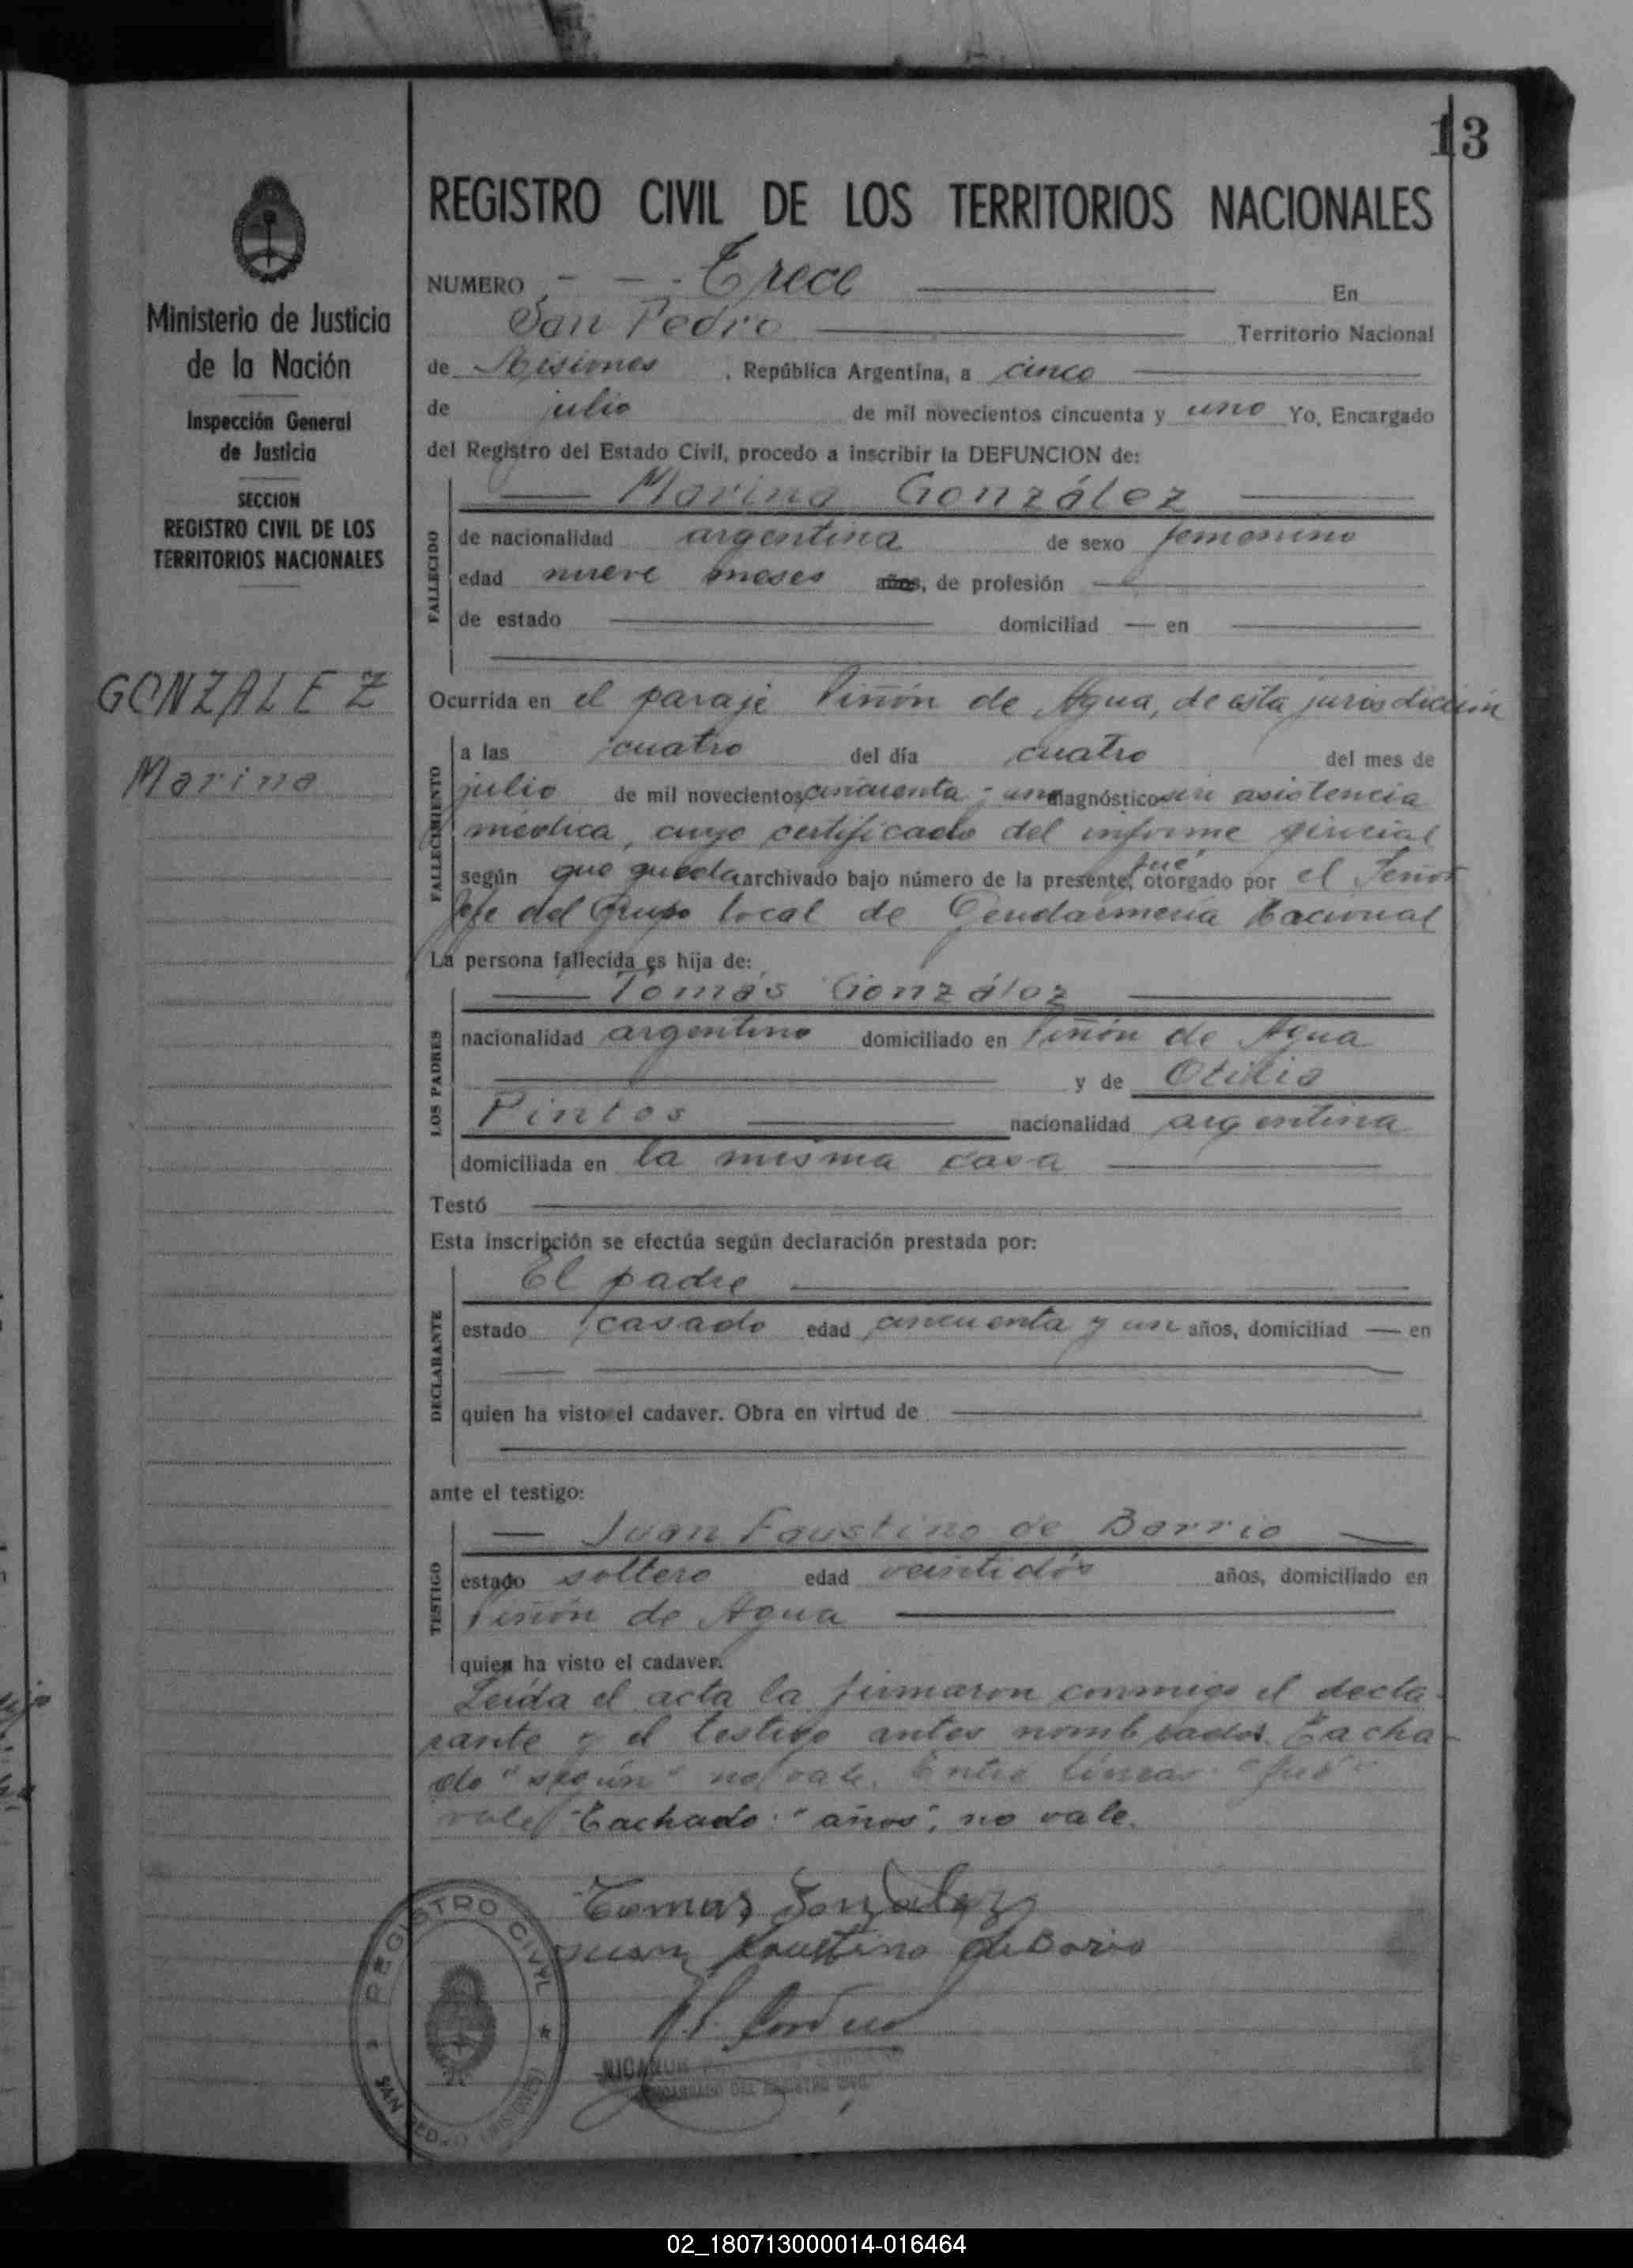 13
REGISTRO CIVIL DE LOS TERRITORIOS NACIONALES
Ministerio de Justicia
de la Nación
Inspección General
de Justicia
SECCION
REGISTRO CIVIL DE LOS
TERRITORIOS NACIONALES
GONZALEZ
Marina
NUMERO - - - Trece En
San Pedro Territorio Nacional
de Misiones, República Argentina, a cinco
de julio de mil novecientos cincuenta y uno Yo, Encargado
del Registro del Estado Civil, procedo a inscribir la DEFUNCION de:
Marina González
FALLECIDO
de nacionalidad argentina de sexo femenino
edad nueve meses años, de profesión
de estado domiciliad — en
Ocurrida en el paraje Piñón de Agua, de esta jurisdicción
FALLECIMIENTO
a las cuatro del día cuatro del mes de
julio de mil novecientos cincuenta y uno diagnóstico sin asistencia
médica, cuyo certificado del informe policial
según que queda archivado bajo número de la presente, fué otorgado por el Señor
Jefe del Grupo local de Gendarmería Nacional
La persona fallecida es hija de:
Tomás González
LOS PADRES
nacionalidad argentino domiciliado en Piñón de Agua
y de Otilia
Pintos nacionalidad argentina
domiciliada en la misma casa
Testó
Esta inscripción se efectúa según declaración prestada por:
El padre
DECLARANTE
estado casado edad cincuenta y un años, domiciliad — en
quien ha visto el cadaver. Obra en virtud de
ante el testigo:
Juan Faustino de Barrio
TESTIGO
estado soltero edad veintidós años, domiciliado en
Piñón de Agua
quien ha visto el cadaver.
Leída el acta la firmaron conmigo el decla-
rante y el testigo antes nombrados. Tacha-
do "según" no vale. Entre líneas "fué"
vale Tachado: "años", no vale.
Tomas Gonzalez
Juan Faustino de Bario
REGISTRO CIVIL
SAN PEDRO (MISIONES)
NICANOR
ENCARGADO DEL REGISTRO CIVIL
02_180713000014-016464